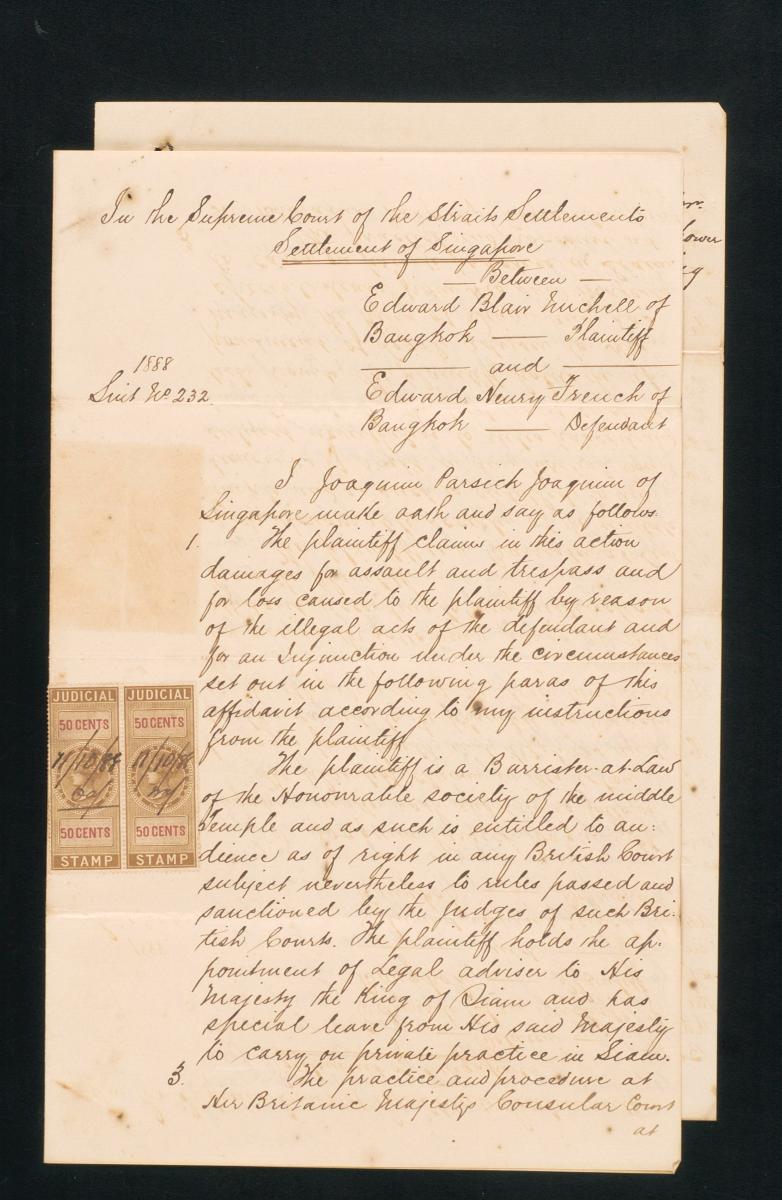 In the Supreme Court of the Straits Settlements
Settlement of Singapore
— Between —
Edward Blair Michell of
Bangkok — Plaintiff
— and —
1888
Suit No 232
Edward Henry French of
Bangkok — Defendant
I Joaquim Parsick Joaquim of
Singapore make oath and say as follows.
1. The plaintiff claims in this action
damages for assault and trespass and
for loss caused to the plaintiff by reason
of the illegal acts of the defendant and
for an Injunction under the circumstances
set out in the following paras of this
affidavit according to my instructions
from the plaintiff
The plaintiff is a Barrister-at-Law
of the Honourable society of the middle
Temple and as such is entitled to au:
dience as of right in any British Court
subject nevertheless to rules passed and
sanctioned by the Judges of such Bri:
tish Courts. The plaintiff holds the ap:
pointment of Legal adviser to His
Majesty the King of Siam and has
special leave from His said Majesty
to carry on private practice in Siam.
3. The practice and procedure at
Her Britanic Majestys Consular Court
at
JUDICIAL
50 CENTS
11/10/88
50 CENTS
STAMP
JUDICIAL
50 CENTS
11/10/88
50 CENTS
STAMP